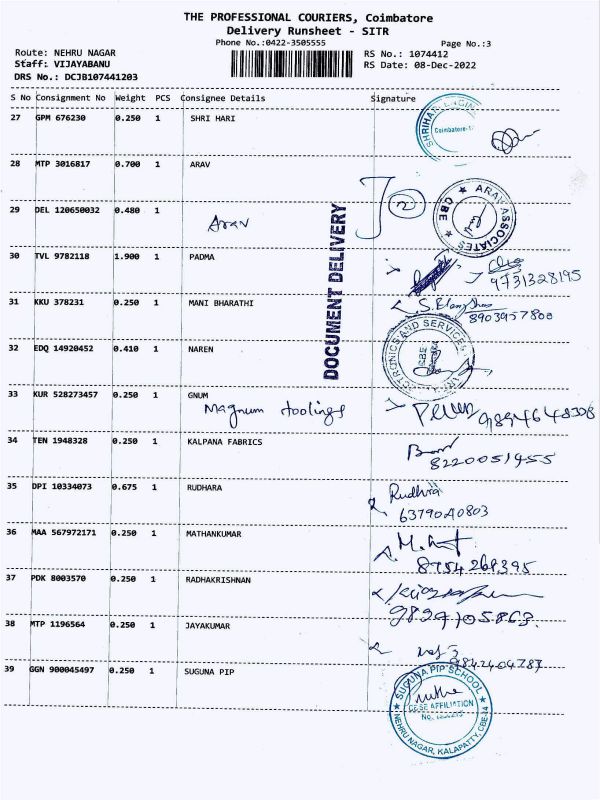 THE PROFESSIONAL COURIERS, Coimbatore
Delivery Runsheet - SITR
Phone No.:0422-3505555
Page No.:3
Route: NEHRU NAGAR
RS No.: 1074412
Staff: VIJAYABANU
RS Date: 08-Dec-2022
DRS No.: DCJB107441203
S No Consignment No Weight PCS Consignee Details Signature
27 GPM 676230 0.250 1 SHRI HARI
Coimbatore
28 MTP 3016817 0.700 1 ARAV
29 DEL 120650032 0.480 1
Arav
ARAV ASSOCIATES ★ CBE ★
DOCUMENT DELIVERY
30 TVL 9782118 1.900 1 PADMA
9731328195
31 KKU 378231 0.250 1 MANI BHARATHI
8903957800
32 EDQ 14920452 0.410 1 NAREN
33 KUR 528273457 0.250 1 GNUM
Magnum toolings
34 TEN 1948328 0.250 1 KALPANA FABRICS
8220051455
35 DPI 10334073 0.675 1 RUDHARA
Rudhra
6379040803
36 MAA 567972171 0.250 1 MATHANKUMAR
8754269395
37 PDK 8003570 0.250 1 RADHAKRISHNAN
38 MTP 1196564 0.250 1 JAYAKUMAR
39 GGN 900045497 0.250 1 SUGUNA PIP
★ SUGUNA PIP SCHOOL ★
CBSE AFFILIATION
NEHRU NAGAR, KALAPATTY, CBE-14